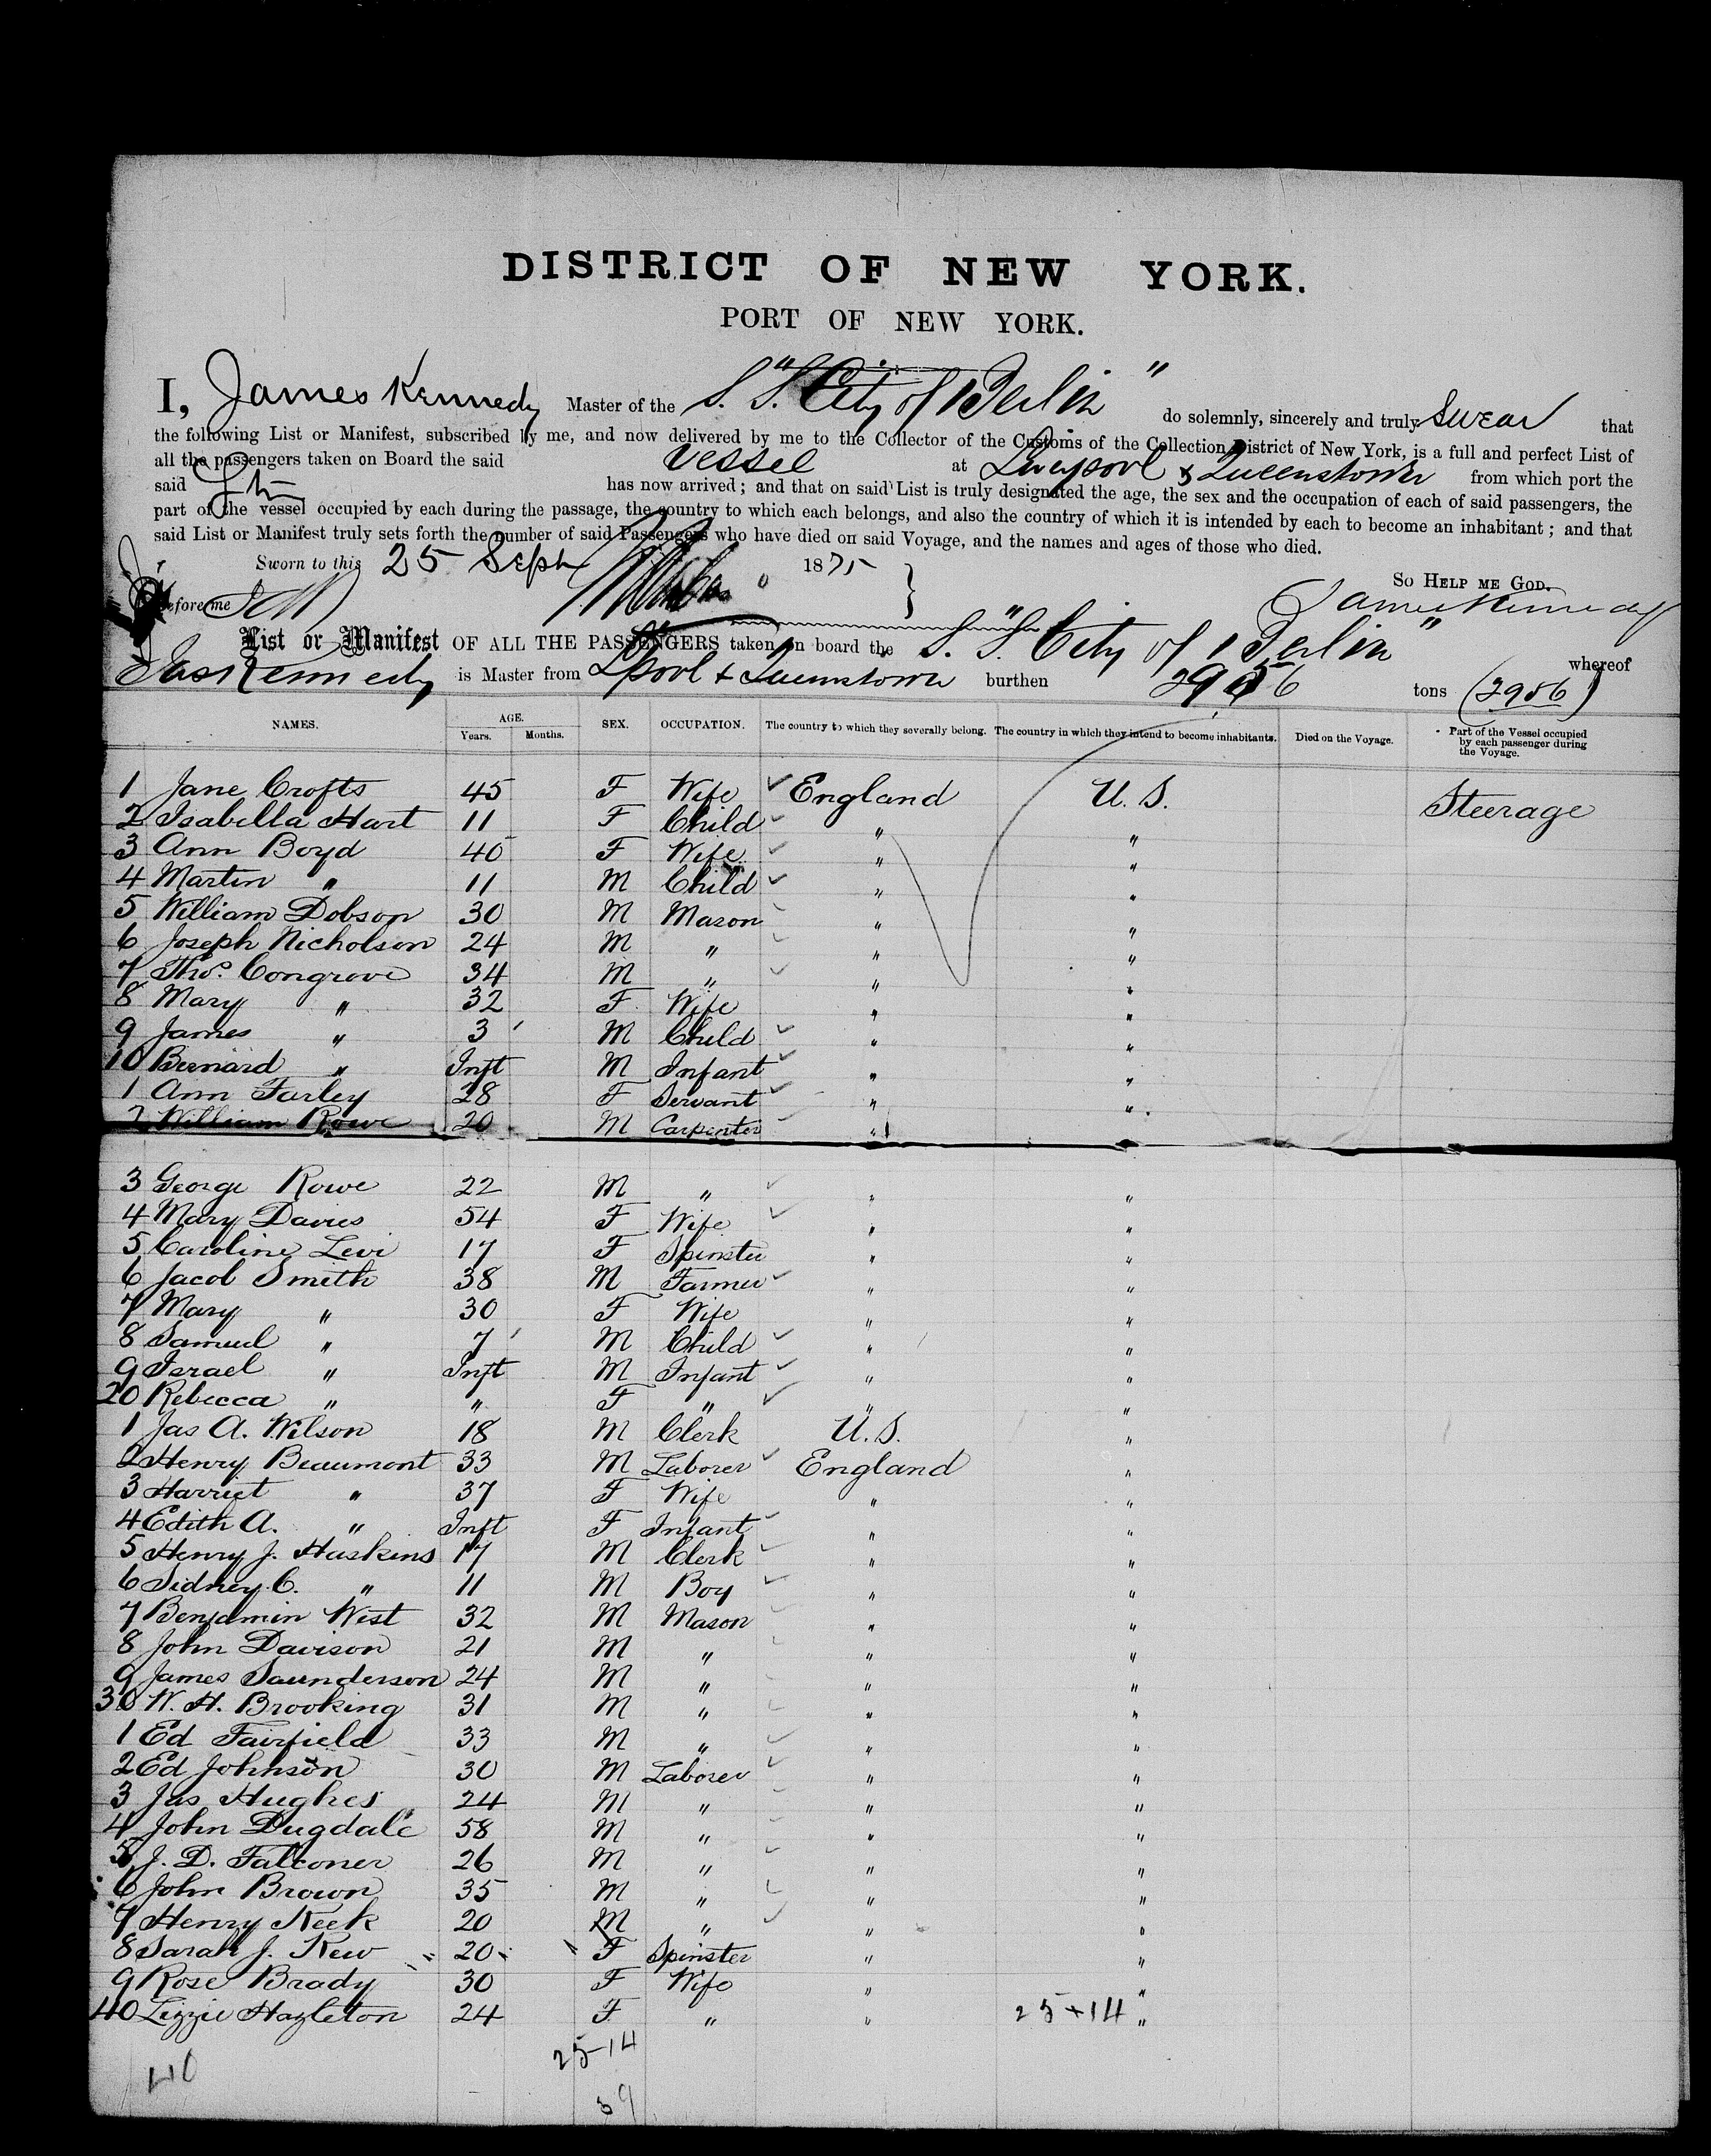 DISTRICT OF NEW YORK.
PORT OF NEW YORK.
I, James Kennedy Master of the S. S. "City of Berlin" do solemnly, sincerely and truly swear that
the following List or Manifest, subscribed by me, and now delivered by me to the Collector of the Customs of the Collection District of New York, is a full and perfect List of
all the passengers taken on Board the said vessel at Liverpool & Queenstown from which port the
said has now arrived; and that on said List is truly designated the age, the sex and the occupation of each of said passengers, the
part of the vessel occupied by each during the passage, the country to which each belongs, and also the country of which it is intended by each to become an inhabitant; and that
said List or Manifest truly sets forth the number of said Passengers who have died on said Voyage, and the names and ages of those who died.
Sworn to this 25 Sept 1875
So Help me God.
Before me
James Kennedy
List or Manifest OF ALL THE PASSENGERS taken on board the S. S. "City of Berlin" whereof
Jas Kennedy is Master from Lpool & Queenstown burthen 2956 tons (2956)
NAMES. AGE. SEX. OCCUPATION. The country to which they severally belong. The country in which they intend to become inhabitants. Died on the Voyage. Part of the Vessel occupied by each passenger during the Voyage.
Years. Months.
1 Jane Crofts 45 F Wife England U.S. Steerage
2 Isabella Hart 11 F Child " "
3 Ann Boyd 40 F Wife " "
4 Martin " 11 M Child " "
5 William Dobson 30 M Mason " "
6 Joseph Nicholson 24 M " " "
7 Thos. Congrove 34 M " " "
8 Mary " 32 F Wife " "
9 James " 3 M Child " "
10 Bernard " Inft M Infant " "
1 Ann Farley 28 F Servant " "
2 William Rowe 20 M Carpenter "
3 George Rowe 22 M " " "
4 Mary Davies 54 F Wife " "
5 Caroline Levi 17 F Spinster " "
6 Jacob Smith 38 M Farmer " "
7 Mary " 30 F Wife " "
8 Samuel " 7 M Child " "
9 Israel " Inft M Infant " "
20 Rebecca " " F " " "
1 Jas A. Wilson 18 M Clerk U.S. "
2 Henry Beaumont 33 M Laborer England "
3 Harriet " 37 F Wife " "
4 Edith A. " Inft F Infant " "
5 Henry J. Haskins 17 M Clerk " "
6 Sidney C. " 11 M Boy " "
7 Benjamin West 32 M Mason " "
8 John Davison 21 M " " "
9 James Saunderson 24 M " " "
30 W. H. Brooking 31 M " " "
1 Ed Fairfield 33 M " " "
2 Ed Johnson 30 M Laborer " "
3 Jas Hughes 24 M " " "
4 John Dugdale 58 M " " "
5 J. D. Falconer 26 M " " "
6 John Brown 35 M " " "
7 Henry Keek 20 M " " "
8 Sarah J. Kew 20 F Spinster " "
9 Rose Brady 30 F Wife " "
40 Lizzie Hazleton 24 F " " 25+14 "
40 25-14
39